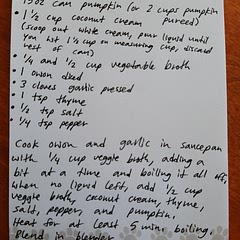 15oz can pumpkin (or 2 cups pumpkin
pureed)
1 1/2 cup coconut cream
(scoop out whole cream, pour liquid until
you hit 1 1/2 cup on measuring cup, discard
rest of can)
• 1/4 and 1/2 cup vegetable broth
• 1 onion diced
• 3 cloves garlic pressed
• 1 tsp thyme
• 1/2 tsp salt
• 1/4 tsp pepper
Cook onion and garlic in saucepan
with 1/4 cup veggie broth, adding a
bit at a time and boiling it all off,
when no liquid left, add 1/2 cup
veggie broth, coconut cream, thyme,
salt, pepper, and pumpkin.
Heat for at least 5 mins boiling.
Blend in blender